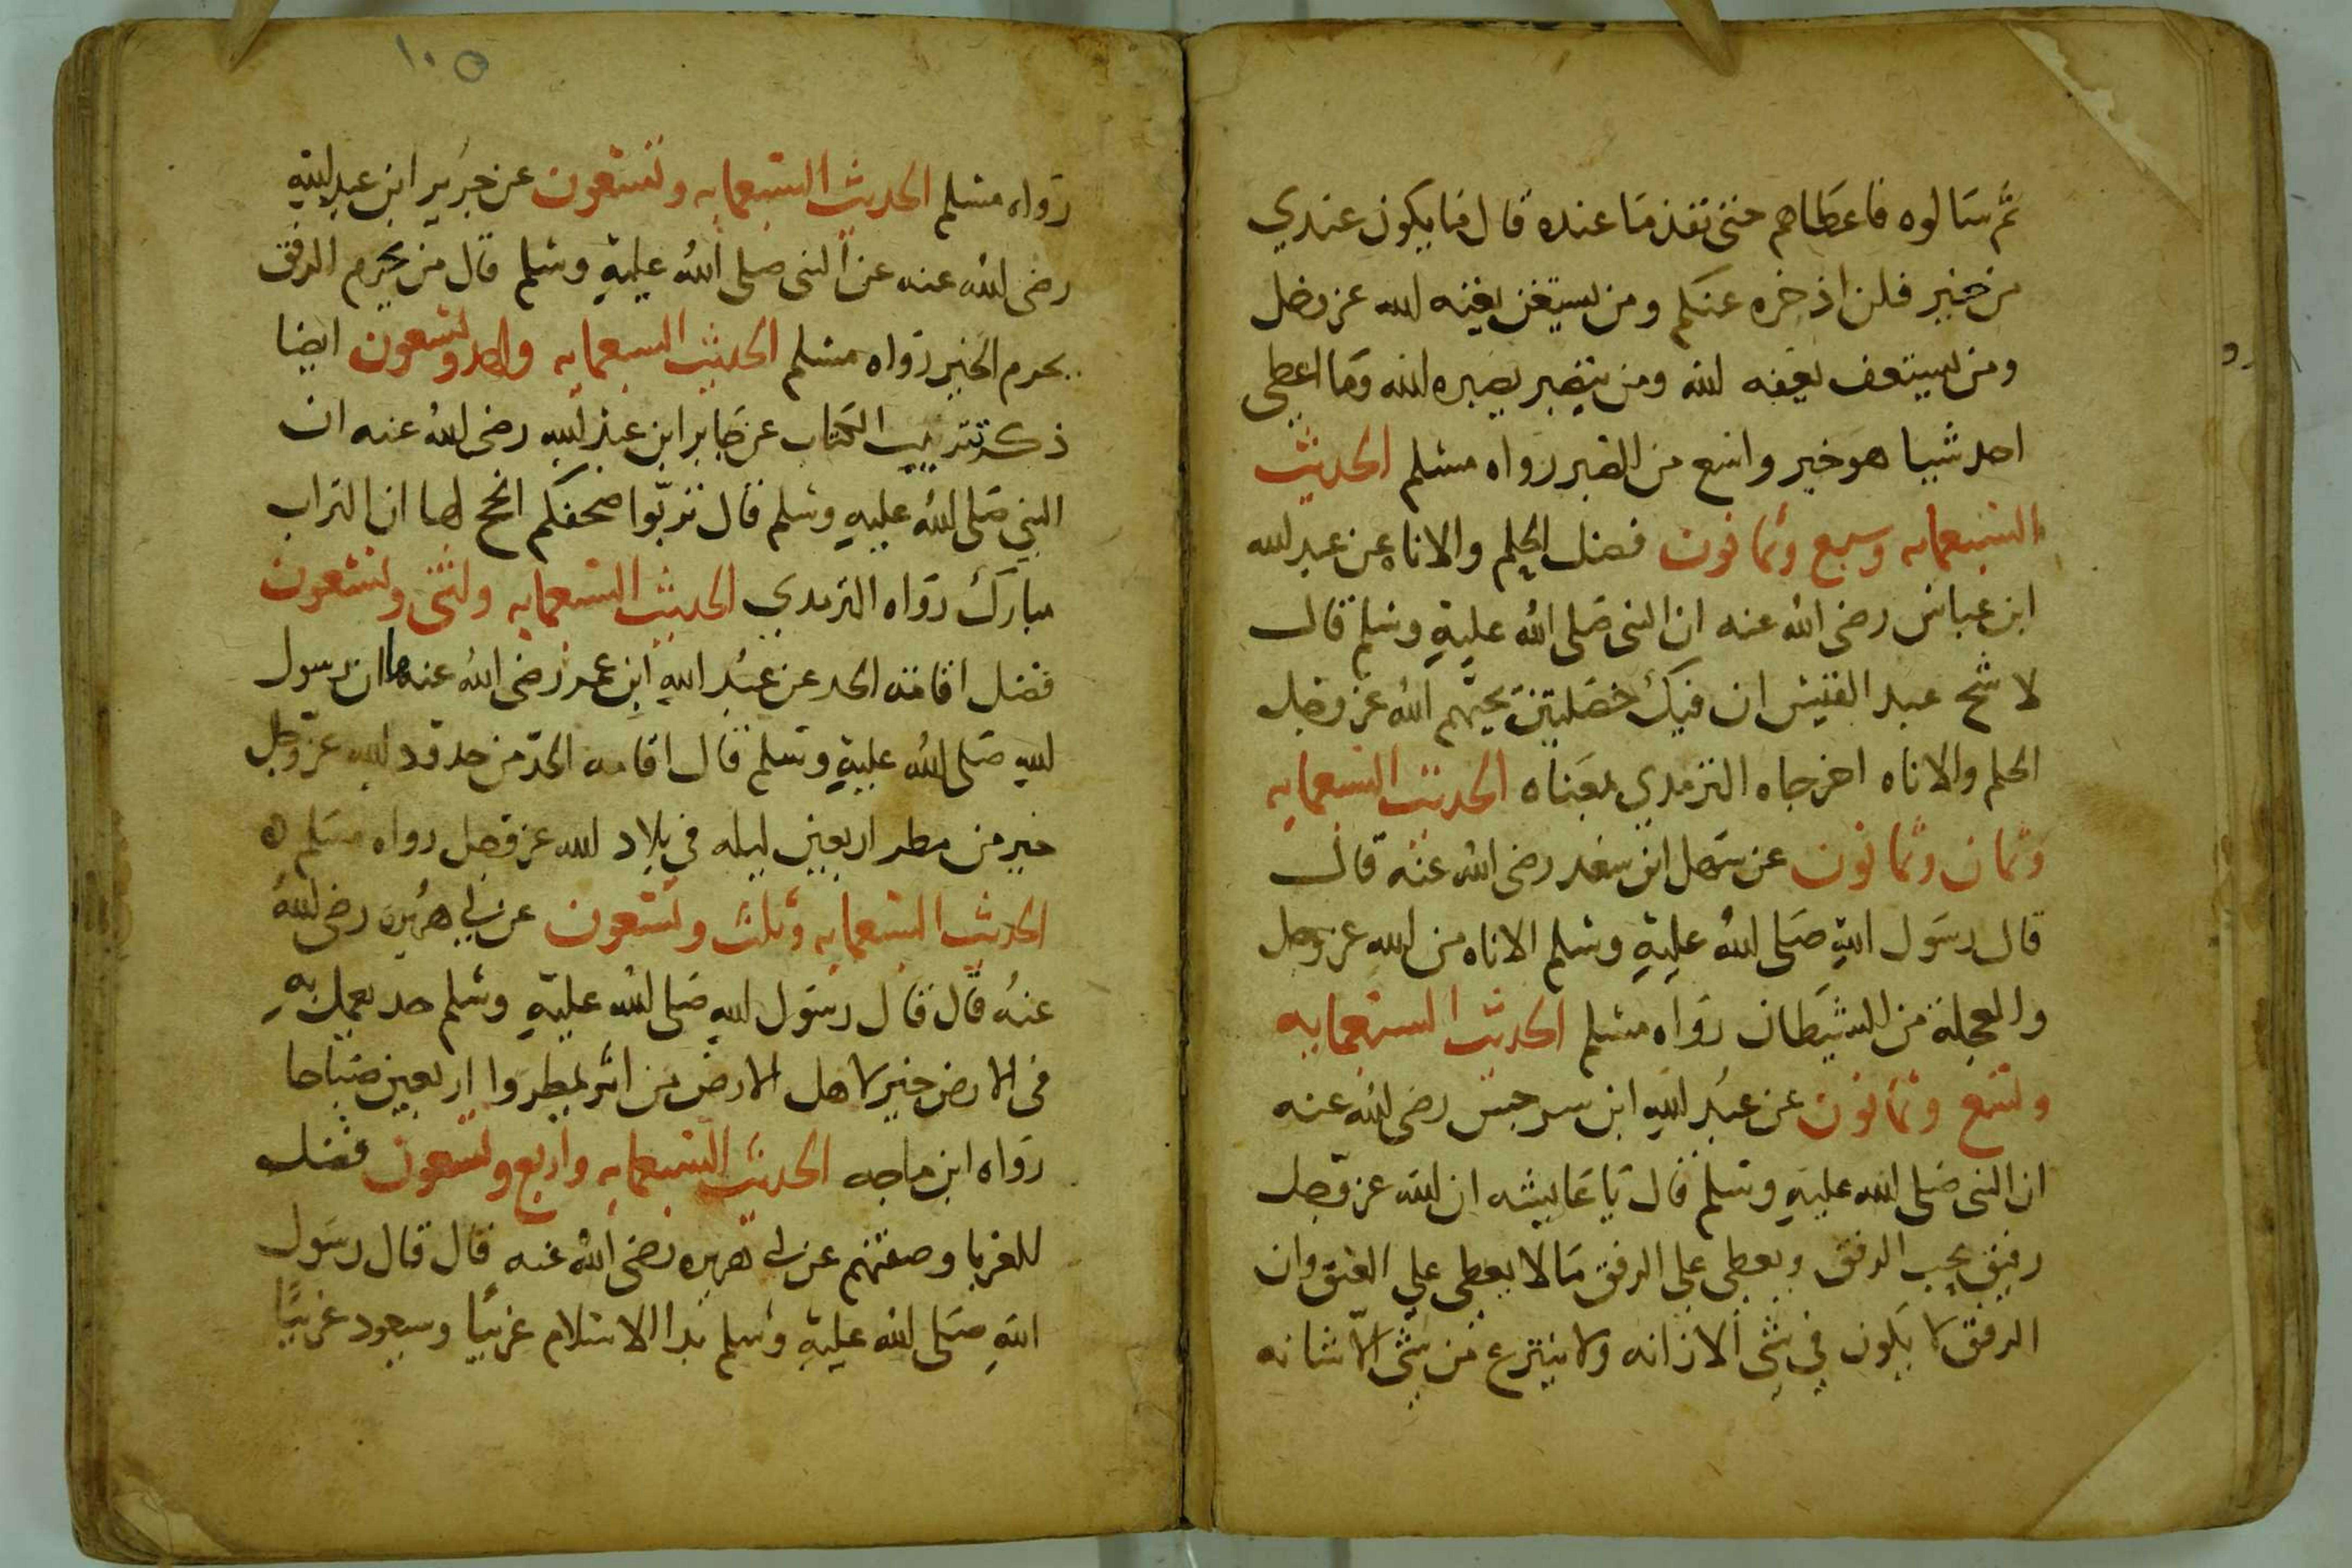 ثم سالوه فاعطاهم حتى نفذ ما عنده قال ما يكون عندي
من خير فلن اذخره عنكم ومن يستغن يغنه الله عز وجل
ومن يستعف يعفه الله ومن يتصبر يصبره الله وما اعطى
احد شيا هو خير واسع من الصبر رواه مسلم الحديث
السبعمايه وسبع وثمانون فضل الحلم والاناه عن عبد الله
ابن عباس رضى الله عنه ان النبى صلى الله عليه وسلم قال
لاشج عبد القيس ان فيك خصلتين يحبهم الله عز وجل
الحلم والاناه اخرجاه الترمدي بمعناه الحديث السبعمايه
وثمان وثمانون عن سهل ابن سعد رضى الله عنه قال
قال رسول الله صلى الله عليه وسلم الاناه من الله عز وجل
والعجلة من الشيطان رواه مسلم الحديث السبعمايه
وتسع وثمانون عن عبد الله ابن سرجس رضى الله عنه
ان النبى صلى الله عليه وسلم قال يا عايشه ان الله عز وجل
رفيق يحب الرفق ويعطى على الرفق ما لا يعطى على العنق وان
الرفق لا يكون في شى الا زانه ولا ينتزع من شى الا شانه
١٠٥
رواه مسلم الحديث السبعمايه وتسعون عن جرير ابن عبد الله
رضى الله عنه عن النبى صلى الله عليه وسلم قال من يحرم الرفق
يحرم الخير رواه مسلم الحديث السبعمايه واحد وتسعون ايضا
ذكر تتريب الكتاب عن جابر ابن عبد الله رضى الله عنه ان
النبي صلى الله عليه وسلم قال تربوا صحفكم انجح لها ان التراب
مبارك رواه الترمدي الحديث السبعمايه واثنى وتسعون
فضل اقامة الحد عن عبد الله ابن عمر رضى الله عنهما ان رسول
الله صلى الله عليه وسلم قال اقامه الحد من حدود الله عز وجل
خير من مطر اربعين ليله في بلاد الله عز وجل رواه مسلم ه
الحديث السبعمايه وثلث وتسعون عن ابي هريره رضى الله
عنه قال قال رسول الله صلى الله عليه وسلم حد يعمل به
فى الارض خير لاهل الارض من ان يمطروا اربعين صباحا
رواه ابن ماجه الحديث السبعمايه واربع وتسعون فضل
للغربا وصفتهم عن ابي هريره رضى الله عنه قال قال رسول
الله صلى الله عليه وسلم بدا الاسلام غريبا وسيعود غريبا